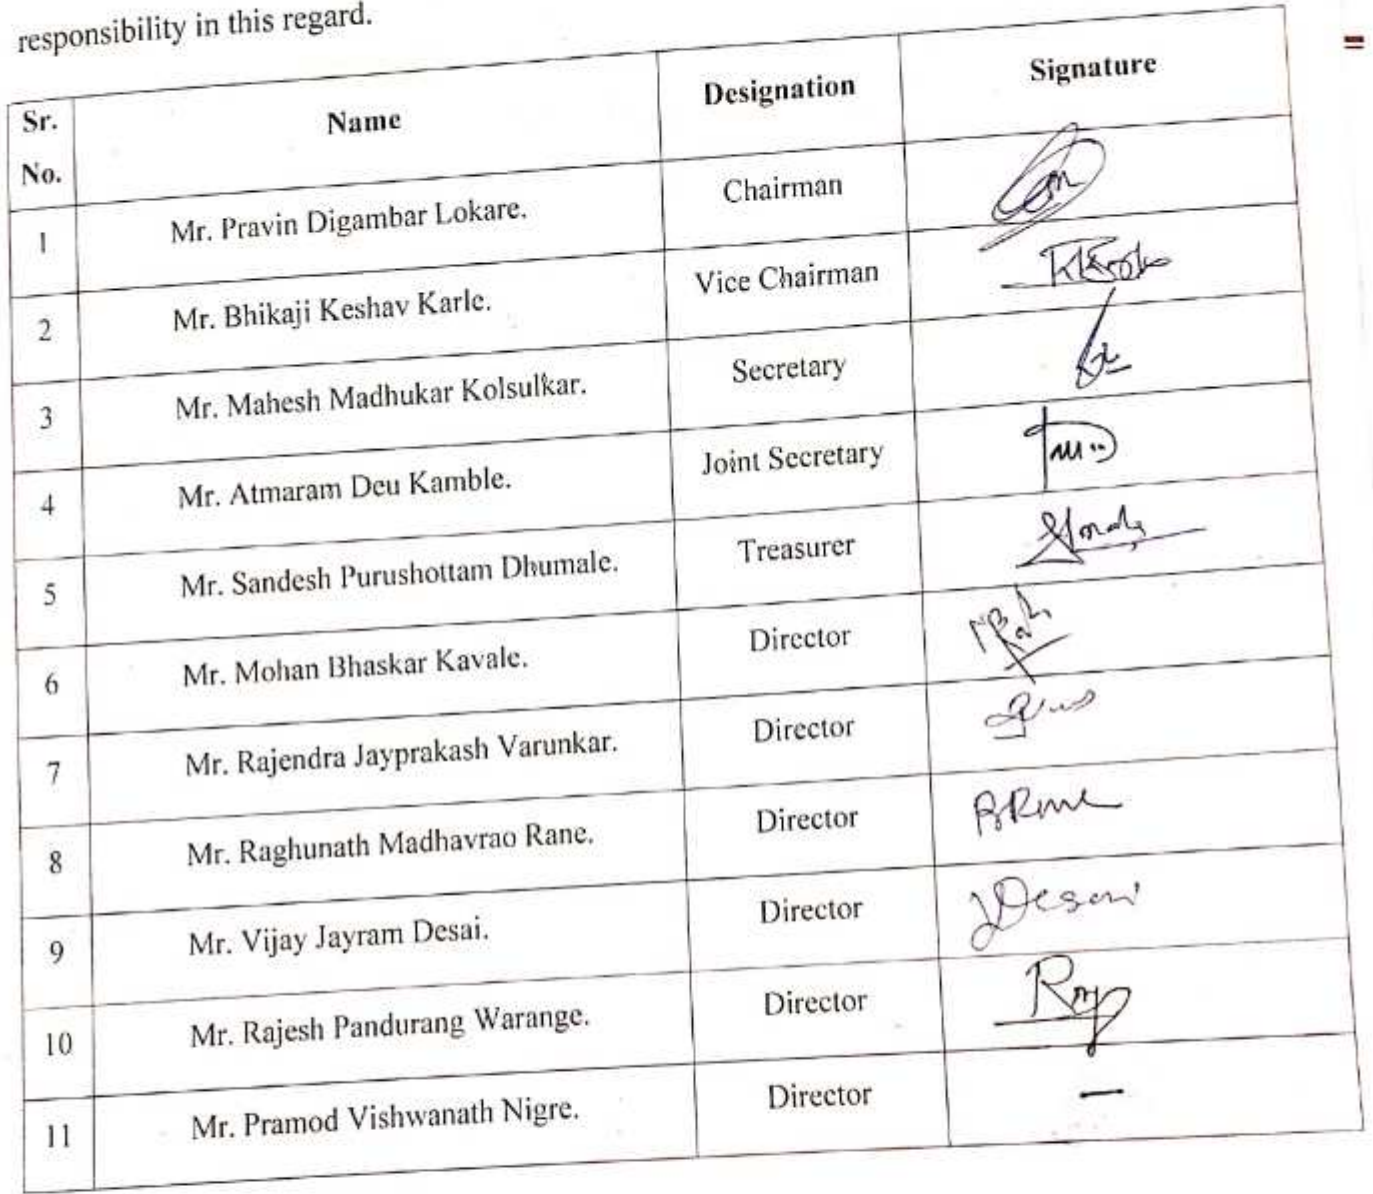 responsibility in this regard.
Sr. No. Name Designation Signature
1 Mr. Pravin Digambar Lokare. Chairman
2 Mr. Bhikaji Keshav Karle. Vice Chairman
3 Mr. Mahesh Madhukar Kolsulkar. Secretary
4 Mr. Atmaram Deu Kamble. Joint Secretary
5 Mr. Sandesh Purushottam Dhumale. Treasurer
6 Mr. Mohan Bhaskar Kavale. Director
7 Mr. Rajendra Jayprakash Varunkar. Director
8 Mr. Raghunath Madhavrao Rane. Director
9 Mr. Vijay Jayram Desai. Director
10 Mr. Rajesh Pandurang Warange. Director
11 Mr. Pramod Vishwanath Nigre. Director —